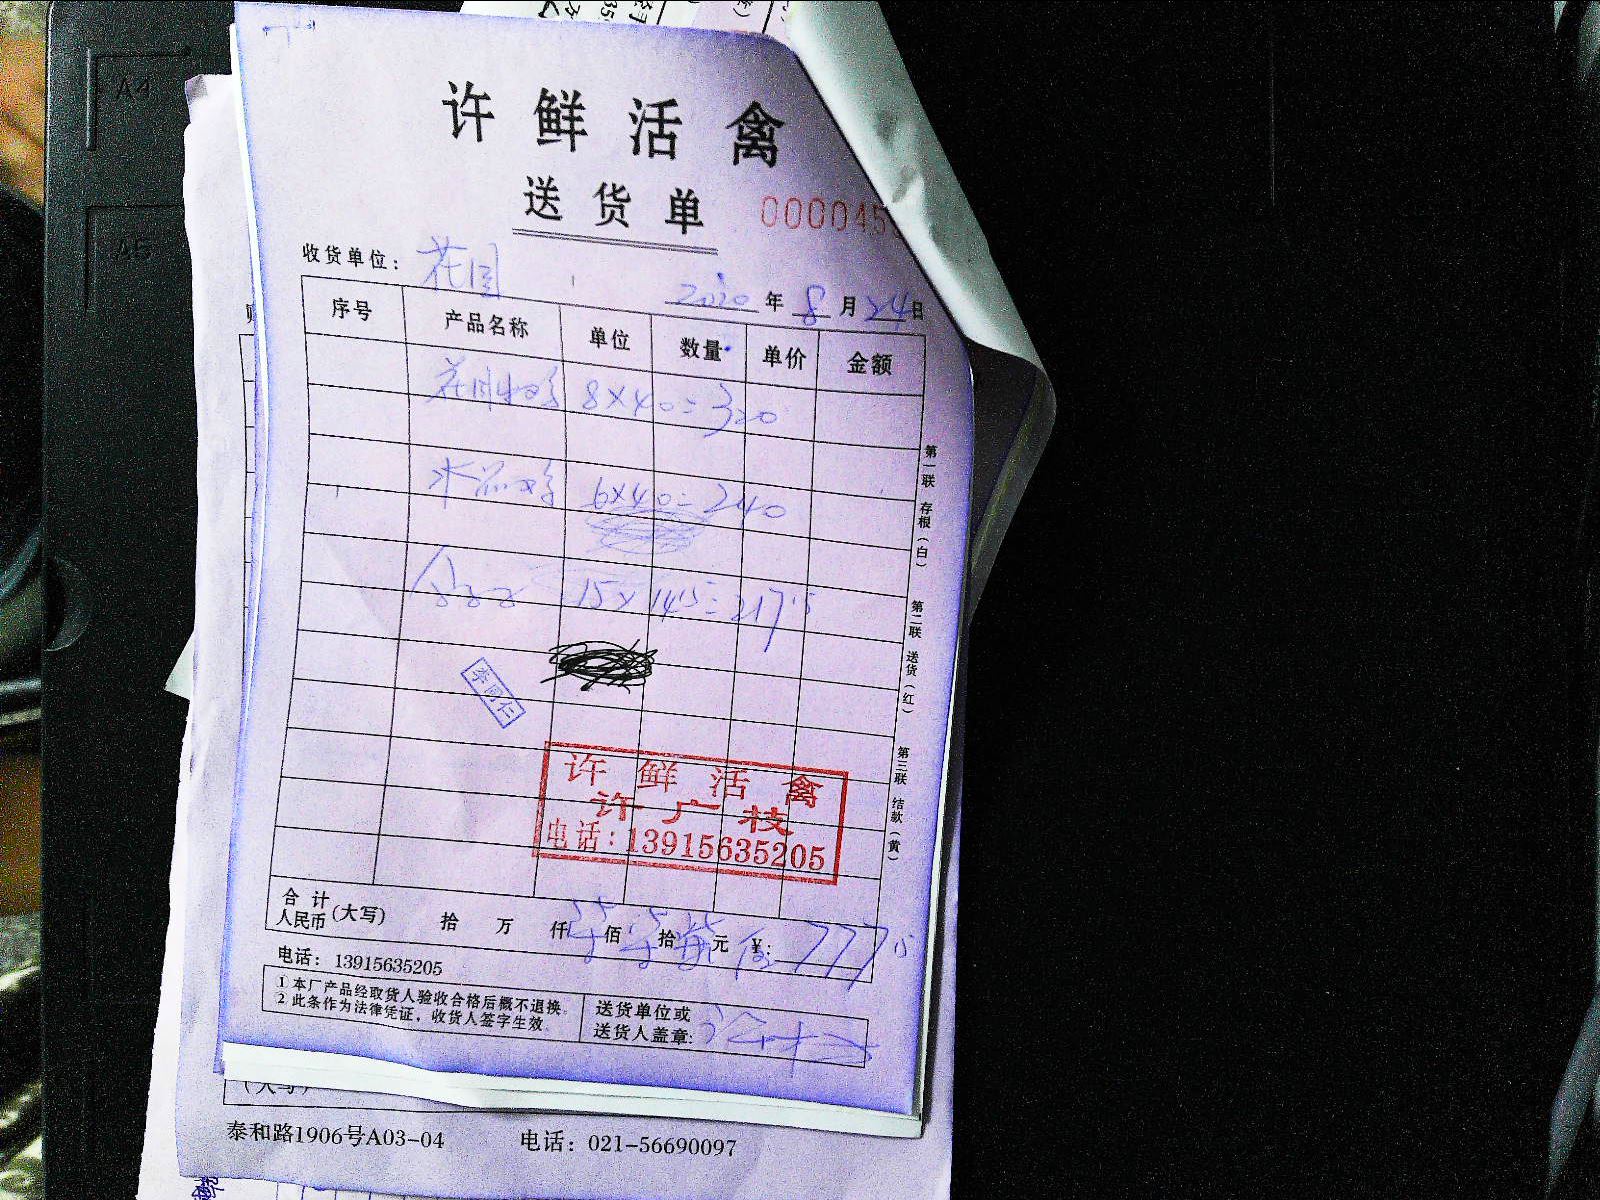 A4
A5
许鲜活禽
送货单
收货单位：花园
2020年8月24日
序号 产品名称 单位 数量 单价 金额
8×40=320
6×40=240
15×14.5=217.5
李同仁
许鲜活禽
许广枝
电话：13915635205
合计人民币（大写） 拾 万 仟 佰 拾 元 ¥：777.5
电话：13915635205
①本厂产品经取货人验收合格后概不退换。
2 此条作为法律凭证，收货人签字生效。
送货单位或
送货人盖章：
第一联 存根（白）
第二联 送货（红）
第三联 结款（黄）
（大写）
泰和路1906号A03-04 电话：021-56690097